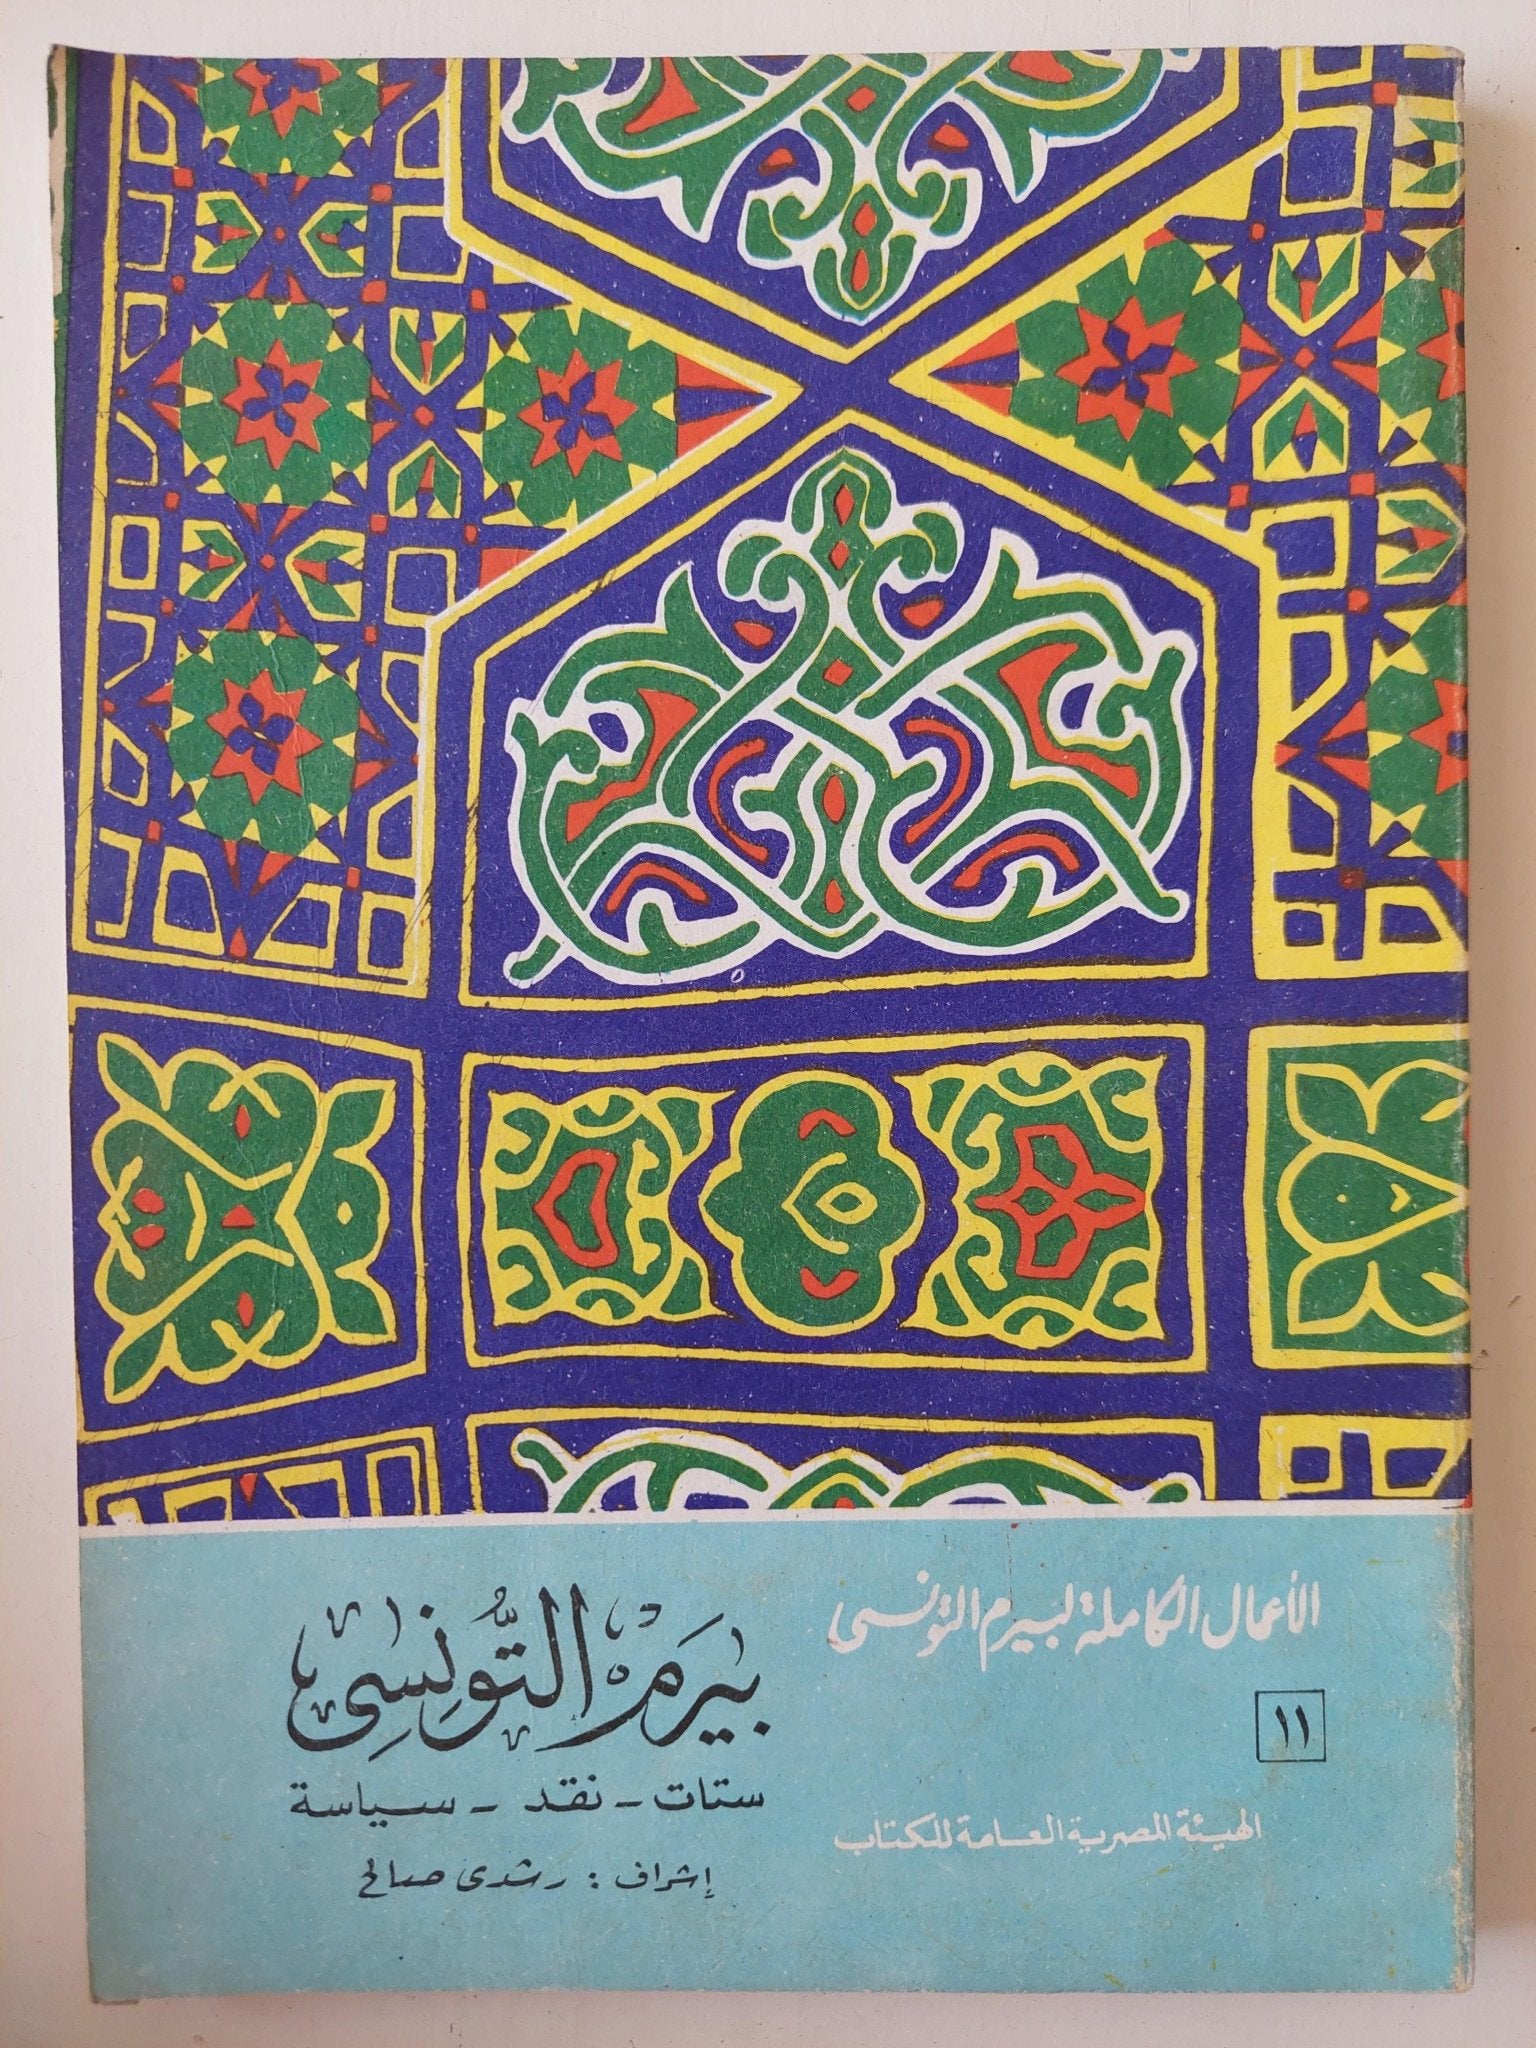 الأعمال الكاملة لبيرم التونسى
١١
الهيئة المصرية العامة للكتاب
بيَرم التّونِسِى
ستات - نقد - سياسة
إشراف : رشدى صالح